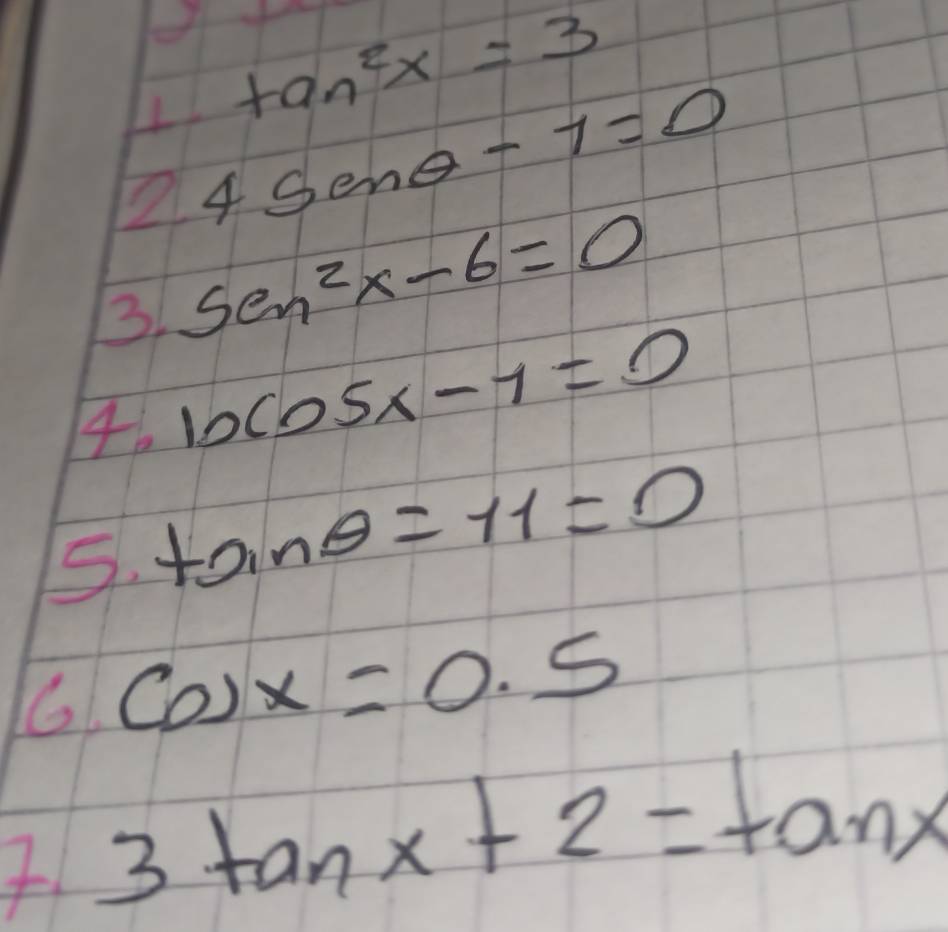 1. tan²x = 3
2. 4 Senθ - 1 = 0
3. Sen²x - 6 = 0
4. 10cosx - 1 = 0
5. tanθ = 11 = 0
6. Cosx = 0.5
7. 3 tanx + 2 = tanx